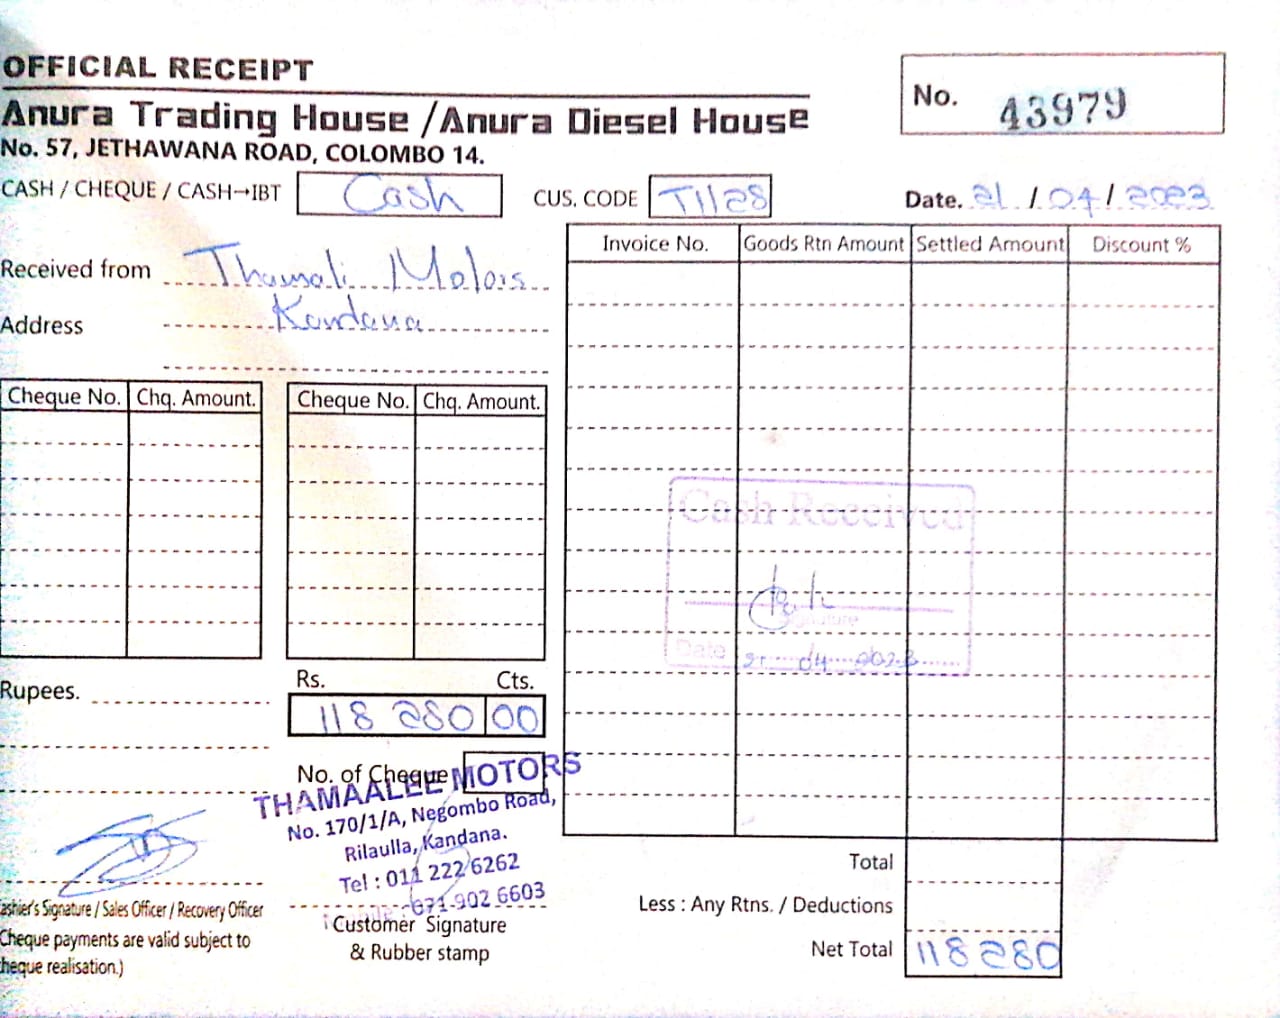 OFFICIAL RECEIPT
Anura Trading House / Anura Diesel House
No. 57, JETHAWANA ROAD, COLOMBO 14.
No. 43979
CASH / CHEQUE / CASH→IBT Cash CUS. CODE T1128 Date. 21 / 04 / 2023
Received from Thamali Motors
Address Kandana
Invoice No. Goods Rtn Amount Settled Amount Discount %
Cheque No. Chq. Amount. Cheque No. Chq. Amount.
Cash Received
Signature
Date 21 04 2023
Rupees. Rs. Cts.
118 280 00
No. of Cheque
THAMAALEE MOTORS
No. 170/1/A, Negombo Road,
Rilaulla, Kandana.
Tel : 011 222 6262
071 902 6603
Total
Less : Any Rtns. / Deductions
Net Total 118 280
ashier's Signature / Sales Officer / Recovery Officer
Cheque payments are valid subject to
heque realisation.)
Customer Signature
& Rubber stamp